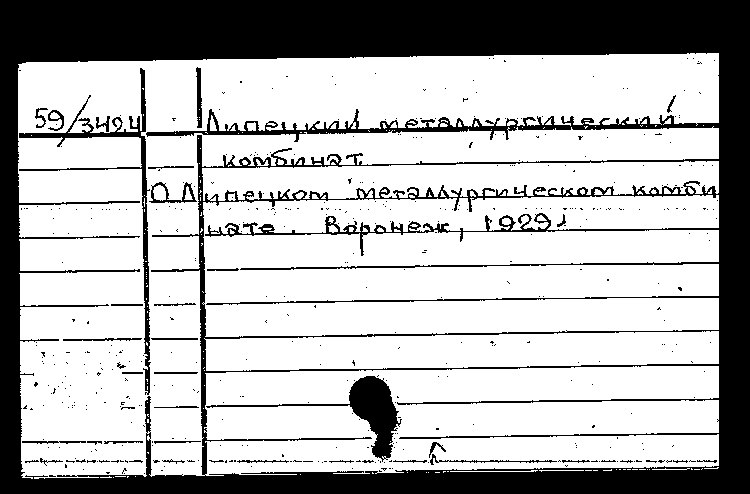 59/3424 Липецкий металлургический
комбинат.
О Липецком металлургическом комби
нате. Воронеж, 1929.